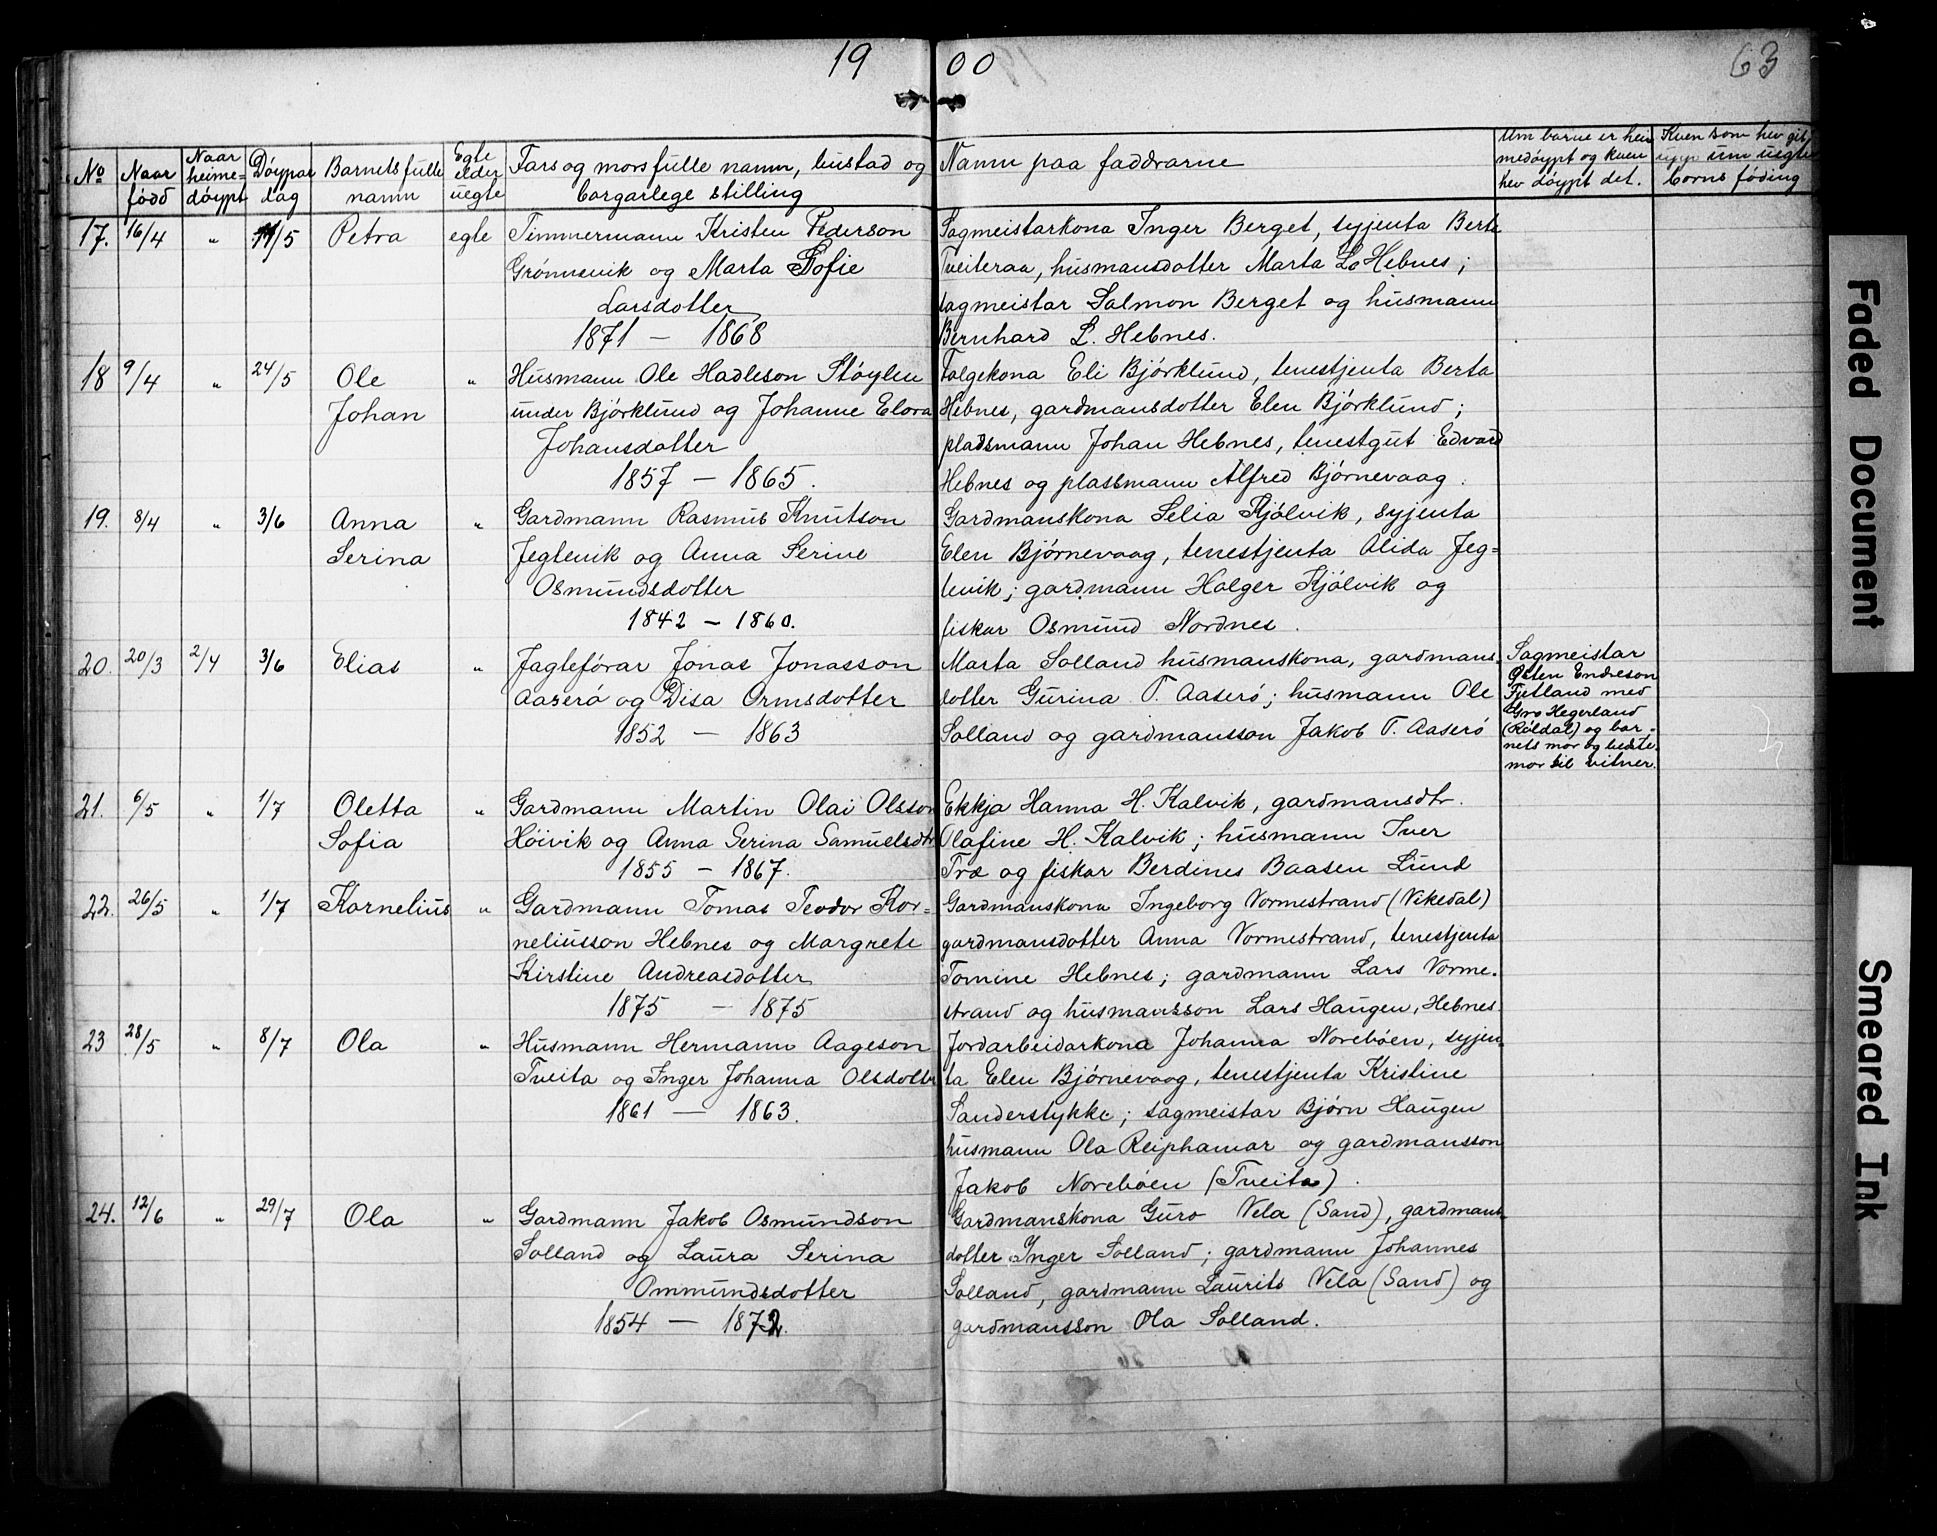 19 00
63
No | Naar fódd | Naar heime=dóypt | Dóypar dag | Barnets fulle namn | Egte elder uegte | Fars og mors fulle namn, bustad og borgarlege stilling | Namn paa faddrarne | Um barne er heimedóypt og kven hev dóypt det. | Kven som hev git upp um uegte borns fóding
17. 16/4 " /5 Petra egte Timmermann Kristen Pederson
Grónnsvik og Marta Sofie
Larsdotter
1871 — 1868
Sagmeistarkona Inger Berget, syjenta Berta
Tveiteraa, husmansdotter Marta L. Hebnes;
sagmeistar Salmon Berget og husmann
Bernhard L. Hebnes.
18 9/4 " 24/5 Ole
Johan
" Husmann Ole Hadleson Stóylen
under Bjórklund og Johanne Elora
Johansdotter
1857 — 1865.
Folgekona Eli Bjórklund, tenestjenta Berta
Hebnes, gardmansdotter Elen Bjórklund;
pladsmann Johan Hebnes, tenestgut Edvard
Hebnes og plassmann Alfred Bjórnevaag.
19. 8/4 " 3/6 Anna
Serina
" Gardmann Rasmus Knutson
Jeglevik og Anna Serine
Osmundsdotter
1842 — 1860.
Gardmanskona Selia Kjólvik, syjenta
Elen Bjórnevaag, tenestjenta Alida Jeg=
levik; gardmann Holger Kjólvik og
fiskar Osmund Nordnes.
20. 20/3 2/4 3/6 Elias
" Jagtefórar Jonas Jonasson
Aaseró og Disa Ormsdotter
1852 — 1863
Marta Solland husmanskona, gardmans=
dotter Gurina T. Aaseró; husmann Ole
Solland og gardmansson Jakob T. Aaseró
Sagmeistar
Østen Endreson
Fjetland med
Gro Hegerland
(Róldal) og bar=
nets mor og beste=
mor til vitner.
21. 6/5 " 1/7 Oletta
Sofia
" Gardmann Martin Olai Olsson
Hóivik og Anna Serina Samuelsdtr
1855 — 1867.
Ekkja Hanna H. Kalvik, gardmansdtr.
Olafine H. Kalvik; husmann Iver
Træ og fiskar Berdines Baasen Lund
22. 26/5 " 1/7 Kornelius
" Gardmann Tomas Teodor Kor=
neliusson Hebnes og Margrete
Kirstine Andreasdotter
1875 — 1875
Gardmanskona Ingeborg Vormestrand (Vikedal)
gardmansdotter Anna Vormestrand, tenestjenta
Tomine Hebnes; gardmann Lars Vorme=
strand og husmansson Lars Haugen, Hebnes.
23 28/5 " 8/7 Ola
" Husmann Hermann Aageson
Tveita og Inger Johanna Olsdotter
1861 — 1863.
Jordarbeidarkona Johanna Norebóen, syjen=
ta Elen Bjórnevaag, tenestjenta Kristine
Sanderstykke; sagmeistar Bjórn Haugen
husmann Ola Reiphamar og gardmansson
Jakob Norebóen (Tveita).
24. 12/6 " 29/7 Ola
" Gardmann Jakob Osmundson
Solland og Laura Serina
Ommundsdotter
1854 — 1872.
Gardmanskona Guro Vela (Sand), gardmans=
dotter Inger Solland; gardmann Johannes
Solland, gardmann Laurits Vela (Sand) og
gardmansson Ola Solland.
Faded Document
Smeared Ink